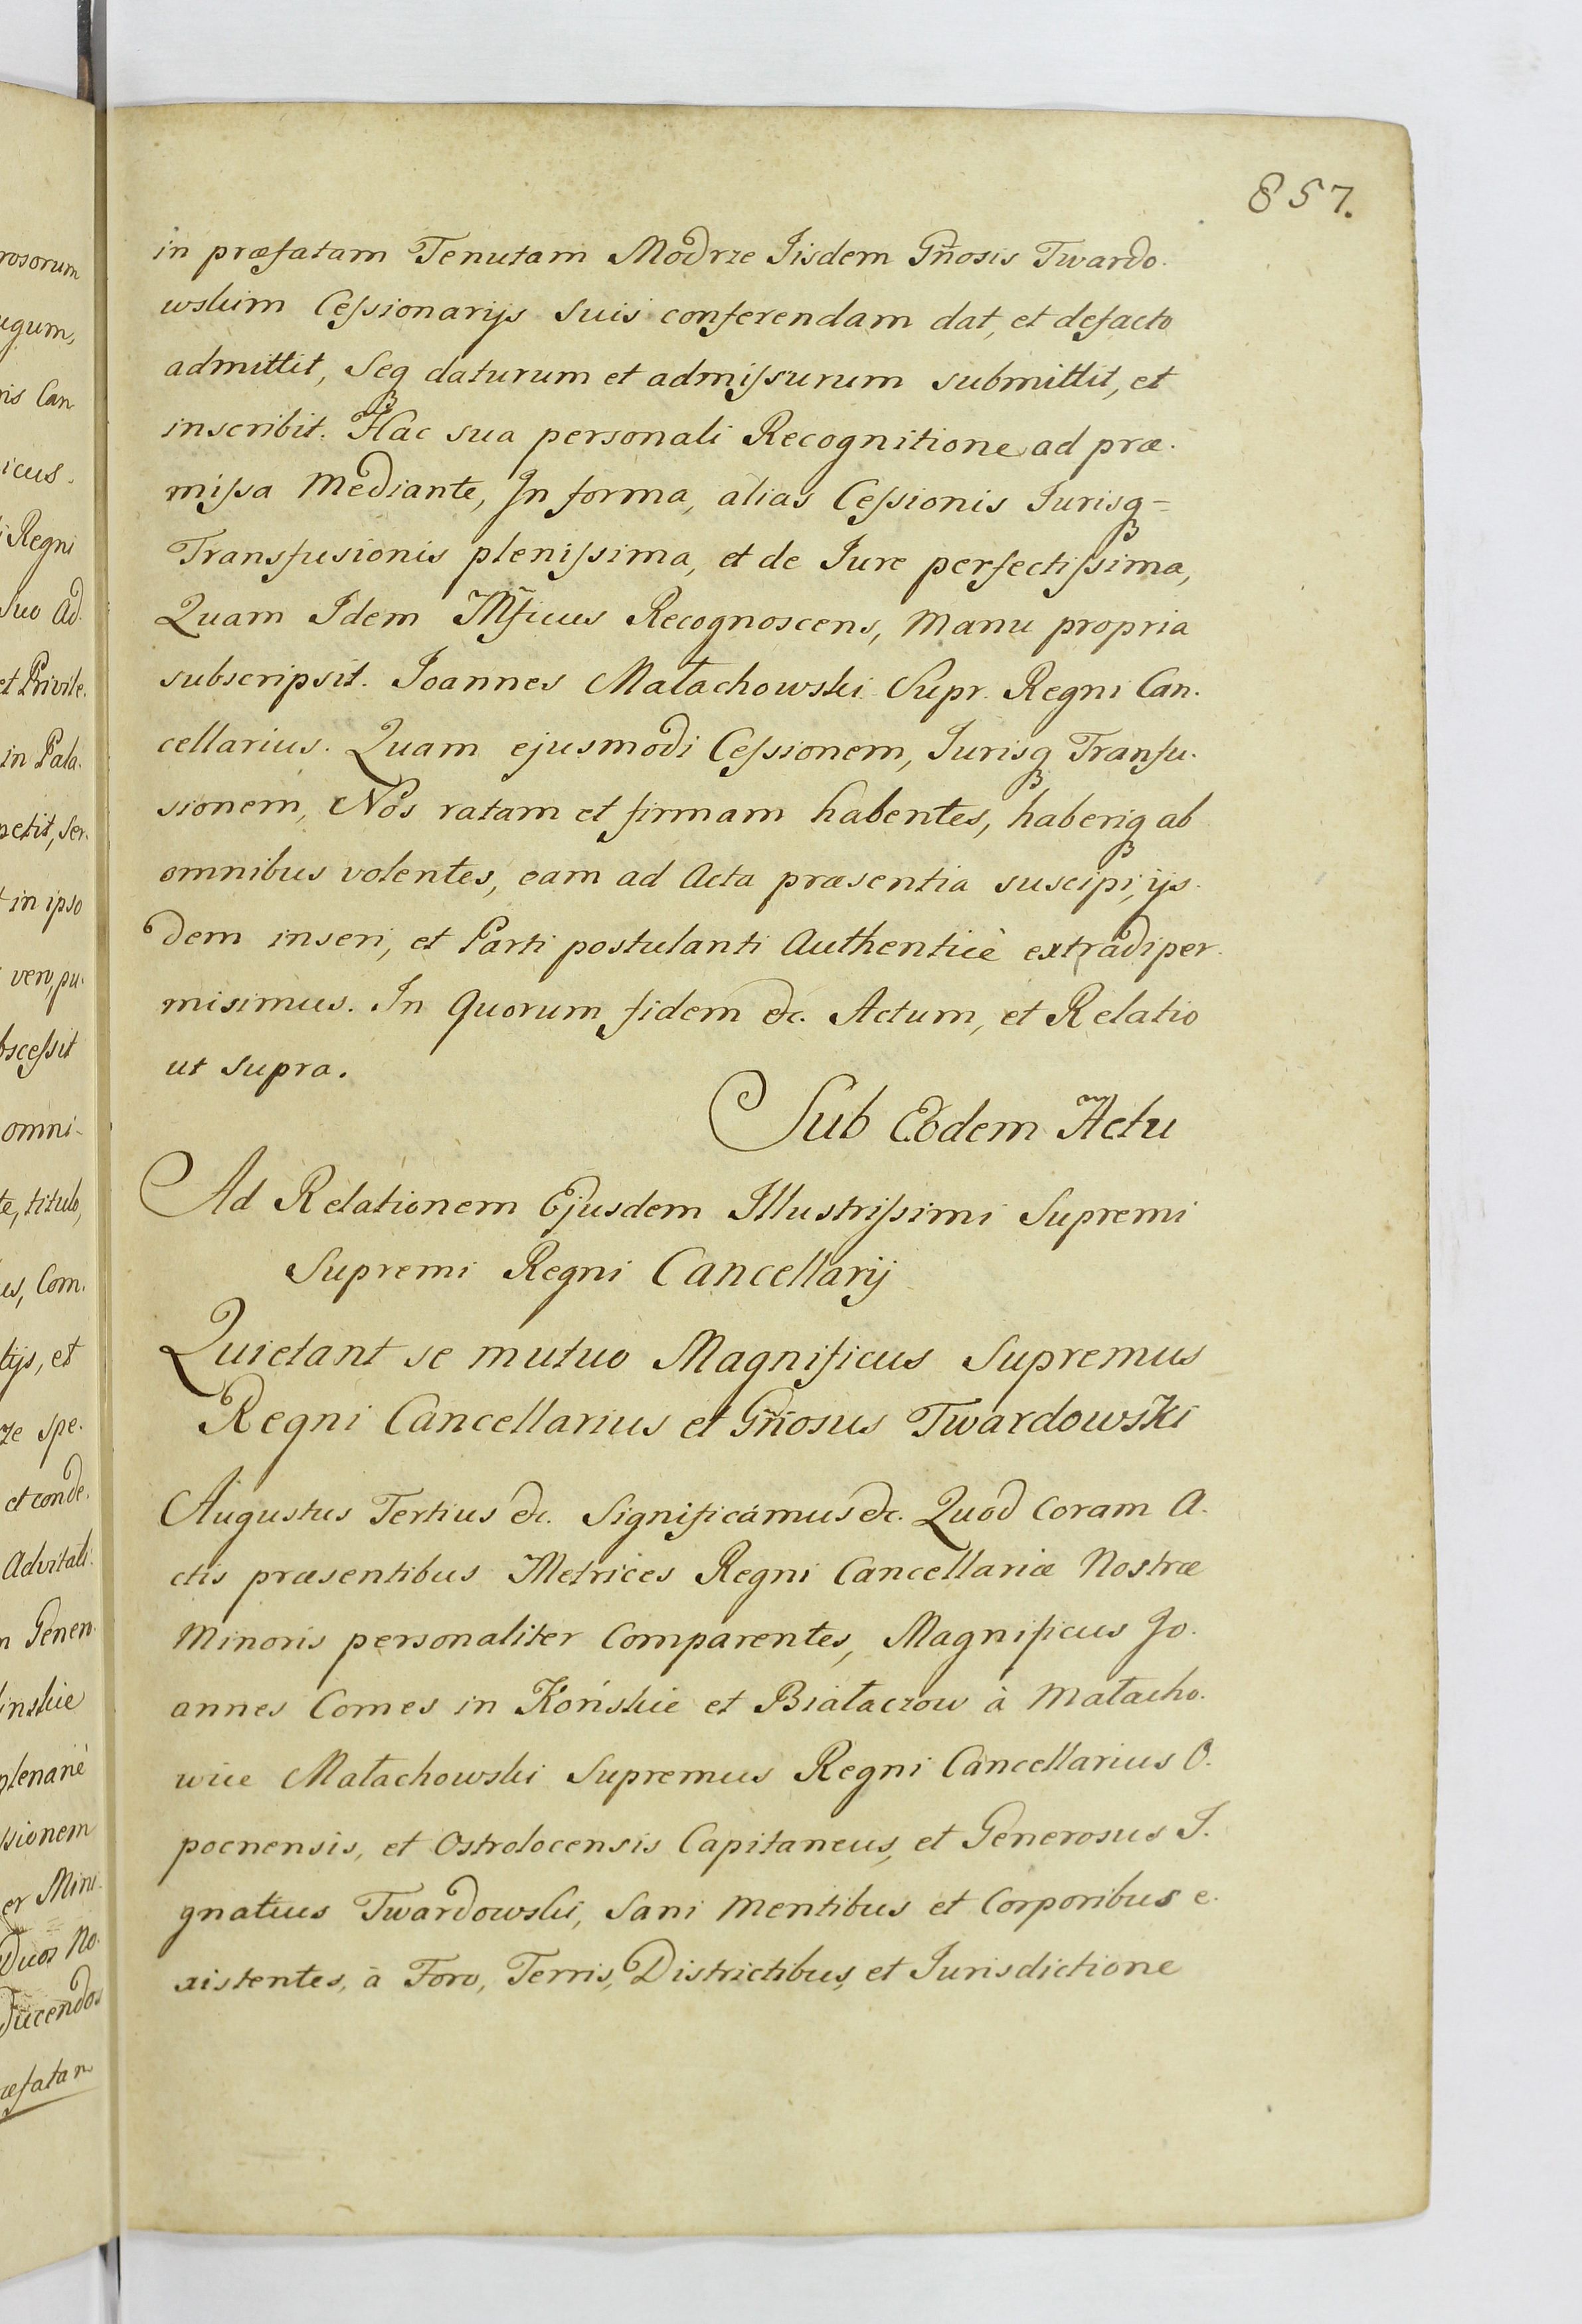 857.
in præfatam Tenutam Modrze Iisdem Gñosis Twardo.
wskim Cessionarijs suis conferendam dat, et defacto
admittit, Seqꝫ daturum et admissurum submittit, et
inscribit. Hac sua personali Recognitione ad præ.
missa Mediante, In forma, alias Cessionis Jurisqꝫ=
Transfusionis plenissima, et de Jure perfectissima,
Quam Idem Mfficus Recognoscens, Manu propria
subscripsit. Joannes Małachowski Supr. Regni Can.
cellarius. Quam ejusmodi Cessionem, Jurisqꝫ Transfu.
sionem, Nos ratam et firmam habentes, haberiqꝫ ab
omnibus volentes, eam ad Acta præsentia suscipi, ijs.
dem inseri, et Parti postulanti Authenticè extradi per.
misimus. In quorum fidem &c. Actum, et Relatio
ut supra.
Sub Eodem Actu
Ad Relationem Ejusdem Illustrissimi Supremi
Supremi Regni Cancellarij
Quietant se mutuo Magnificus Supremus
Regni Cancellarius et Gñosus Twardowski
Augustus Tertius &c. Significamus &c. Quod Coram A.
ctis præsentibus Metrices Regni Cancellariæ Nostræ
Minoris personaliter Comparentes, Magnificus Jo.
annes Comes in Końskie et Białaczow à Małacho.
wice Małachowski Supremus Regni Cancellarius O.
pocnensis, et Ostrolocensis Capitaneus, et Generosus I.
gnatius Twardowski, Sani Mentibus et Corporibus e.
xistentes, à Foro, Terris, Districtibus, et Jurisdictione
rosorum
ugum,
ris Can
icus.
i Regni
suo Ad.
et Privile.
in Pala.
petit, Ser.
t in ipso
vero, pu.
bscessit
omni-
te, titulo,
us, Com.
tijs, et
ze spe.
et conde.
Advitali.
n Genen.
inskie
plenariè
ssionem
er Mini.
Duos No.
Ducendos
æfatam